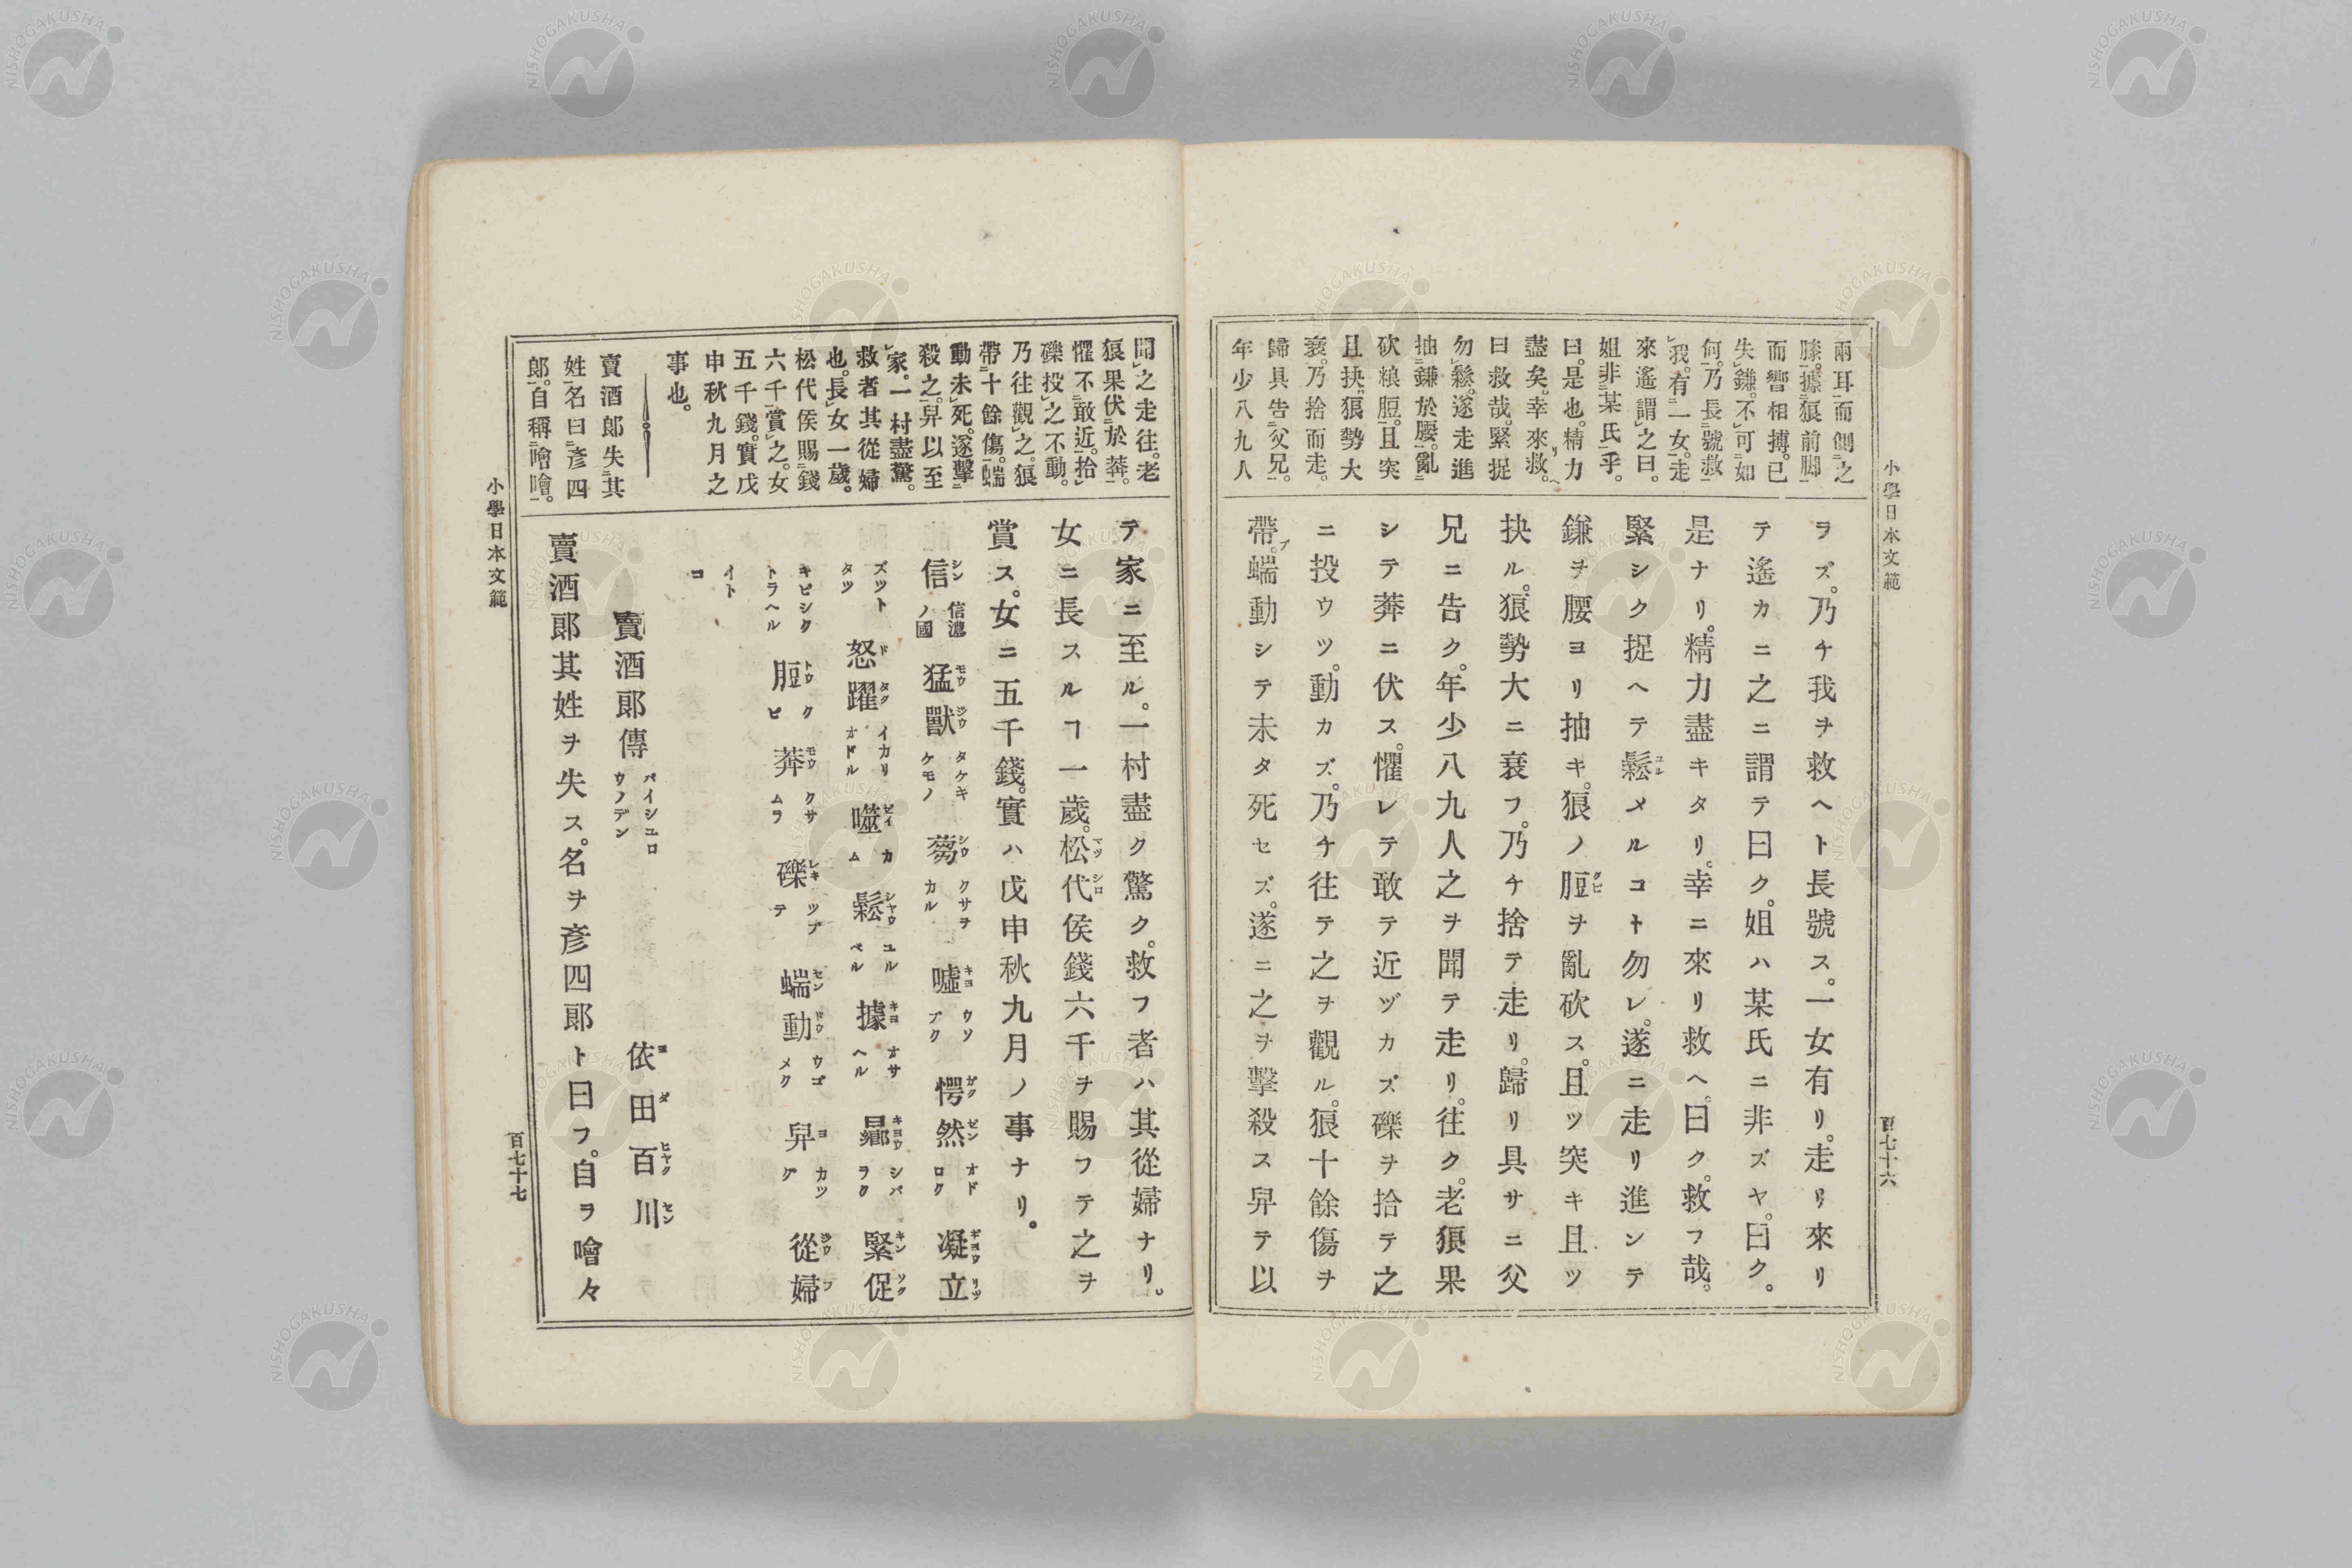 小學日本文範
百七十六
兩耳而側之
膝據狼前脚
而響相搏。已
失鎌。不可如
何。乃長號救
我。有一女。走
來遙謂之曰。
姐非某氏乎。
曰。是也。精力
盡矣。幸來救。
曰救哉。緊捉
勿鬆。遂走進
抽鎌於腰。亂
砍狼脰。且突
且抉。狼勢大
衰。乃捨而走。
歸具告父兄。
年少八九人
ヲズ。乃チ我ヲ救ヘト長號ス。一女有リ。走リ來リ
テ遙カニ之ニ謂テ曰ク。姐ハ某氏ニ非ズヤ。曰ク。
是ナリ。精力盡キタリ。幸ニ來リ救ヘ。曰ク。救フ哉。
緊シク捉ヘテ鬆メルコト勿レ。遂ニ走リ進ンテ
鎌ヲ腰ヨリ抽キ。狼ノ脰ヲ亂砍ス。且ツ突キ且ツ
抉ル。狼勢大ニ衰フ。乃チ捨テ走リ。歸リ具サニ父
兄ニ告ク。年少八九人之ヲ聞テ走リ。往ク。老狼果
シテ莾ニ伏ス。懼レテ敢テ近ヅカズ礫ヲ拾テ之
ニ投ウツ。動カズ。乃チ往テ之ヲ觀ル。狼十餘傷ヲ
帶。蝡動シテ未タ死セズ。遂ニ之ヲ擊殺ス舁テ以
聞之走往。老
狼果伏於莾。
懼不敢近。拾
礫投之不動。
乃往觀之。狼
帶十餘傷。蝡
動未死。遂擊
殺之。舁以至
家。一村盡驚。
救者其從婦
也。長女一歲。
松代侯賜錢
六千賞之。女
五千錢。實戊
申秋九月之
事也。
賣酒郞失其
姓名曰彥四
郞。自稱噲噲。
テ家ニ至ル。一村盡ク驚ク。救フ者ハ其從婦ナリ。
女ニ長スルヿ一歲。松代侯錢六千ヲ賜フテ之ヲ
賞ス。女ニ五千錢。實ハ戊申秋九月ノ事ナリ。
信シン 信濃ノ國 猛獸モウジウ タケキケモノ 蒭シウ クサヲカル 噓キヨ ウソブク 愕然ガクゼン オドロク 凝立ギヨウリツ
ズツトタツ 怒躍ドタク イカリオドル 噬ゼイ カム 鬆シヤウ ユルベル 據キヨ オサヘル 勗キヨウ シバラク 緊促キンソク
キビシクトラヘル 脰トウ クビ 莾モウ クサムラ 礫レキ ツブテ 蝡動センドウ ウゴメク 舁ヨ カツグ 從婦ジウフ
イトコ
賣酒郞傳 バイシユロウノデン 依田百川ヨダヒヤクセン
賣酒郞其姓ヲ失ス。名ヲ彥四郞ト曰フ。自ヲ噲々
小學日本文範
百七十七